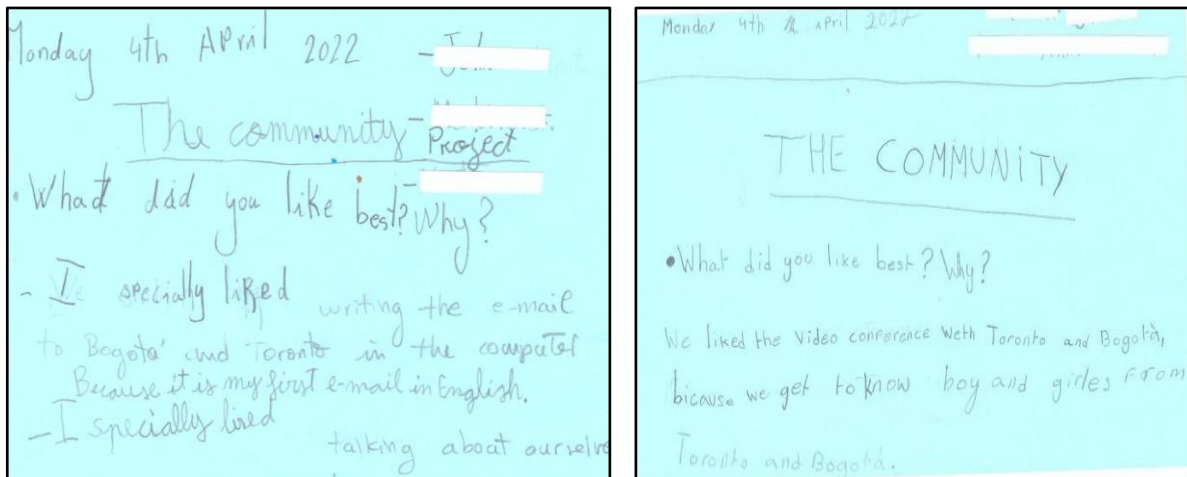 Monday 4th April 2022
The community
Project
• What did you like best? Why?
- I specially liked writing the e-mail
to Bogotá and Toronto in the computer
Because it is my first e-mail in English.
- I specially lired
talking about ourselve
Monday 4th April 2022
THE COMMUNITY
• What did you like best? Why?
We liked the video conference weth Toronto and Bogotà,
bicause we get to know boy and girles From
Toronto and Bogotá.